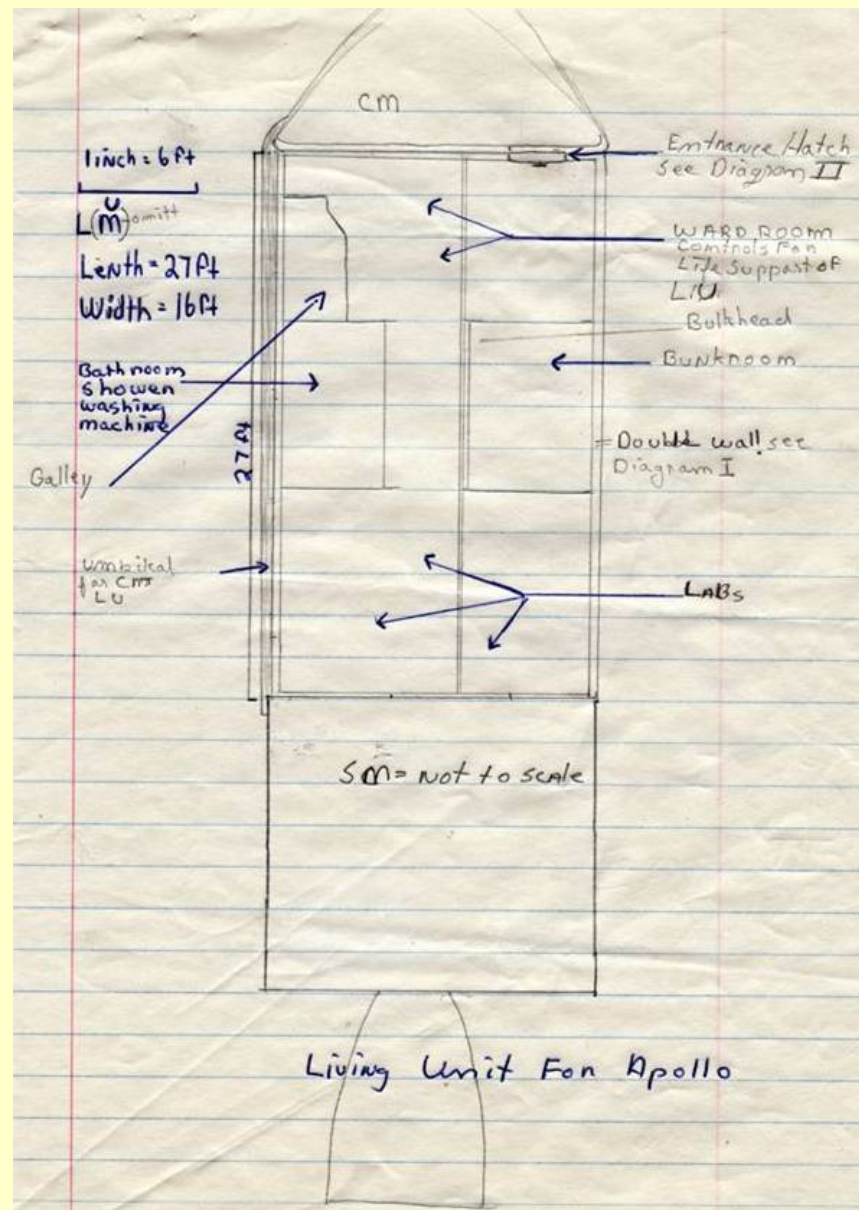 cm
1inch = 6 ft
L(m) omitt
Lenth = 27 ft
Width = 16 ft
Bathroom
shower
washing
machine
Galley
27 ft
umbikal
for cm
LU
Entrance Hatch
see Diagram II
WARD ROOM
Controls For
Life Suppast of
LIU
Bulkhead
Bunkroom
Double wall see
Diagram I
LABs
SM = not to scale
Living Unit For Apollo